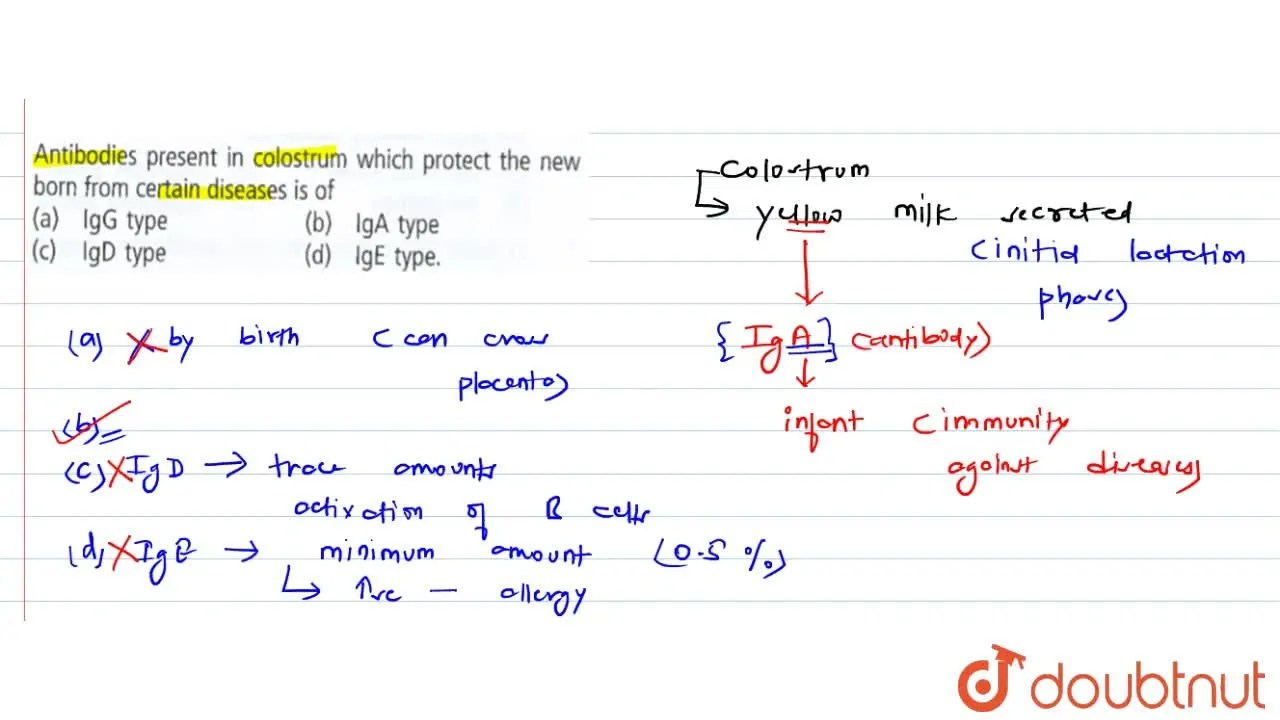 Antibodies present in colostrum which protect the new
born from certain diseases is of
(a) IgG type (b) IgA type
(c) IgD type (d) IgE type.
Colostrum
yellow milk secreted
(initial lactation
phase)
{IgA} (antibody)
infant (immunity
against diseases)
(a) X by birth (can cross
placenta)
(b)
(c) X IgD → trace amounts
activation of B cells
(d) X IgE → minimum amount (0.5 %)
↳ ↑se — allergy
doubtnut